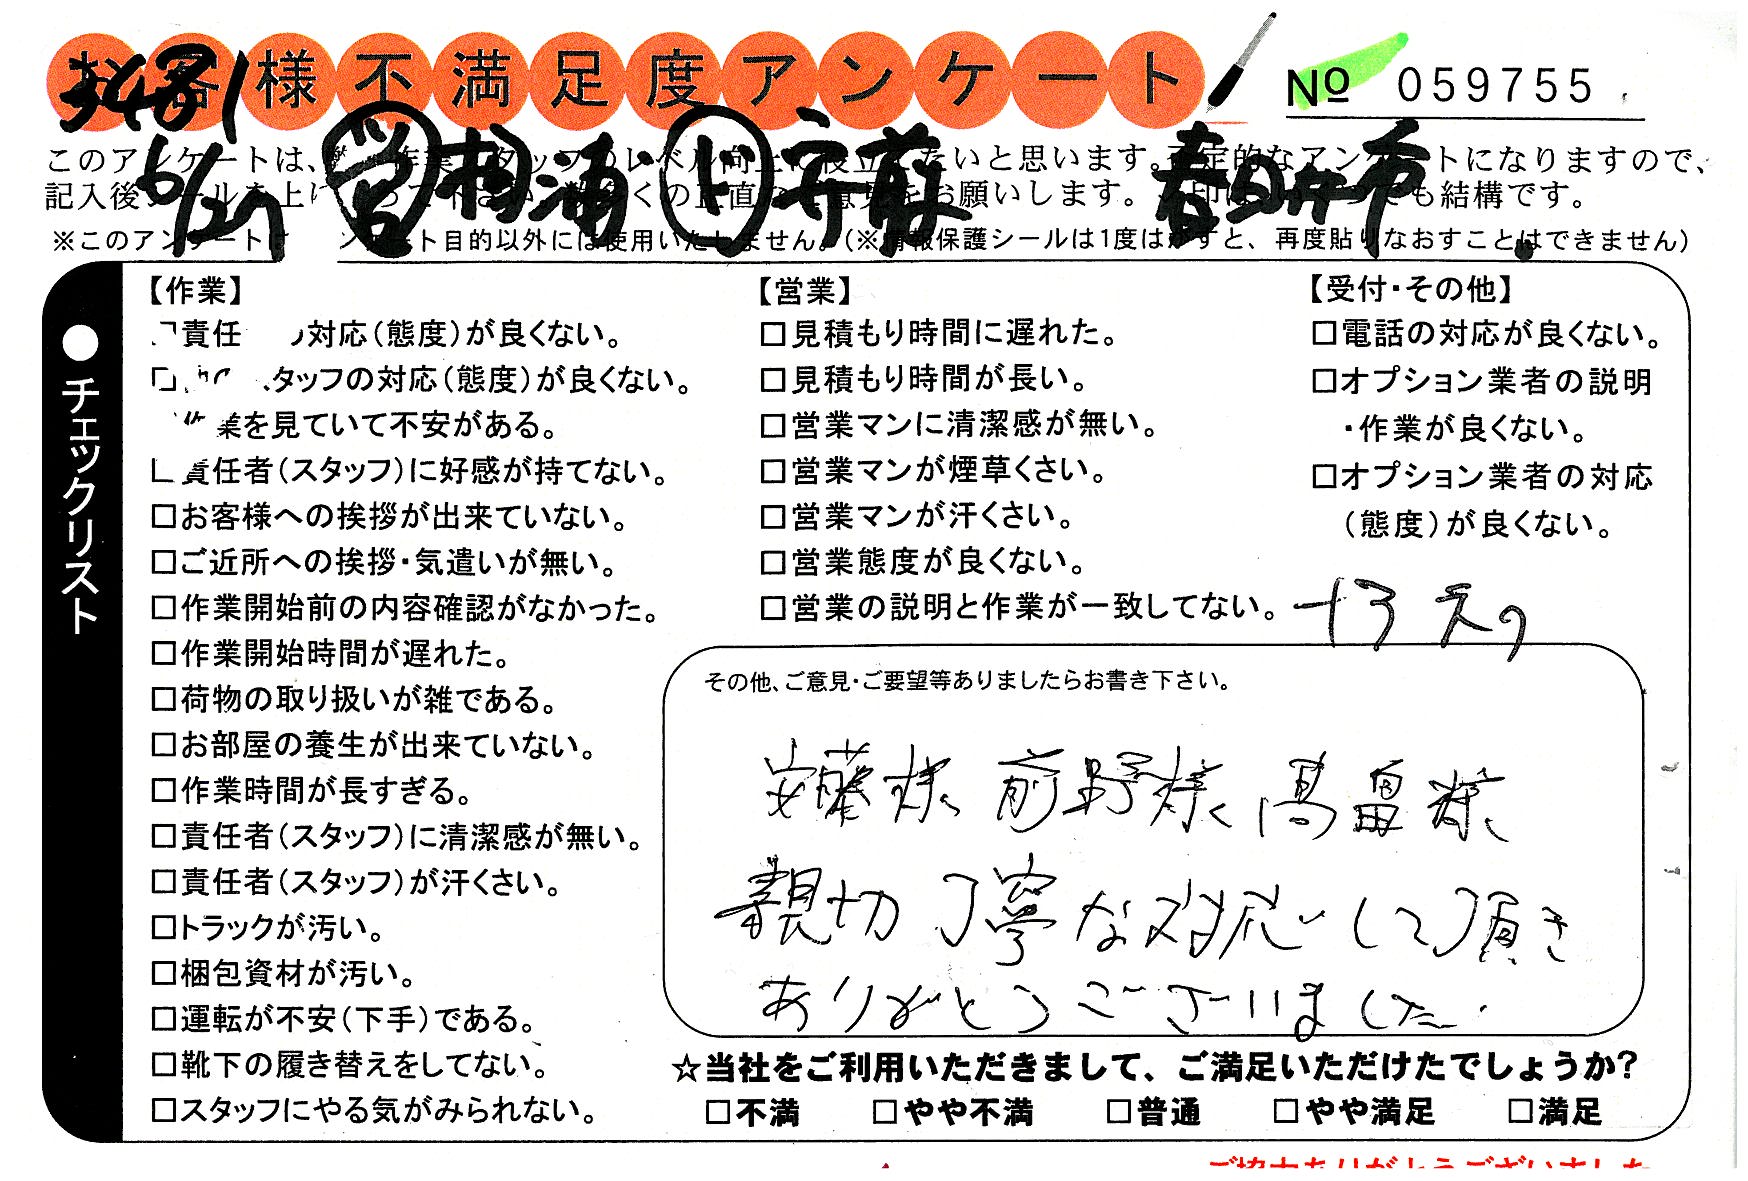 お客様不満足度アンケート
No 059755
6/27 営 杉浦 ト 安藤 春日井市
このアンケートは、作業スタッフのレベル向上に役立てたいと思います。否定的なアンケートになりますので、
記入後シールを上に貼って下さい。数多くの正直なご意見をお願いします。印はいくつでも結構です。
※このアンケートはアンケート目的以外には使用いたしません。(※情報保護シールは1度はがすと、再度貼りなおすことはできません)
●チェックリスト
【作業】
責任 の対応(態度)が良くない。
□ スタッフの対応(態度)が良くない。
作業を見ていて不安がある。
□責任者(スタッフ)に好感が持てない。
□お客様への挨拶が出来ていない。
□ご近所への挨拶・気遣いが無い。
□作業開始前の内容確認がなかった。
□作業開始時間が遅れた。
□荷物の取り扱いが雑である。
□お部屋の養生が出来ていない。
□作業時間が長すぎる。
□責任者(スタッフ)に清潔感が無い。
□責任者(スタッフ)が汗くさい。
□トラックが汚い。
□梱包資材が汚い。
□運転が不安(下手)である。
□靴下の履き替えをしてない。
□スタッフにやる気がみられない。
【営業】
□見積もり時間に遅れた。
□見積もり時間が長い。
□営業マンに清潔感が無い。
□営業マンが煙草くさい。
□営業マンが汗くさい。
□営業態度が良くない。
□営業の説明と作業が一致してない。
【受付・その他】
□電話の対応が良くない。
□オプション業者の説明
・作業が良くない。
□オプション業者の対応
(態度)が良くない。
その他、ご意見・ご要望等ありましたらお書き下さい。
安藤様、前野様、高畠様、
親切丁寧な対応して頂き
ありがとうございました.
☆当社をご利用いただきまして、ご満足いただけたでしょうか?
□不満 □やや不満 □普通 □やや満足 □満足
ご協力ありがとうございました